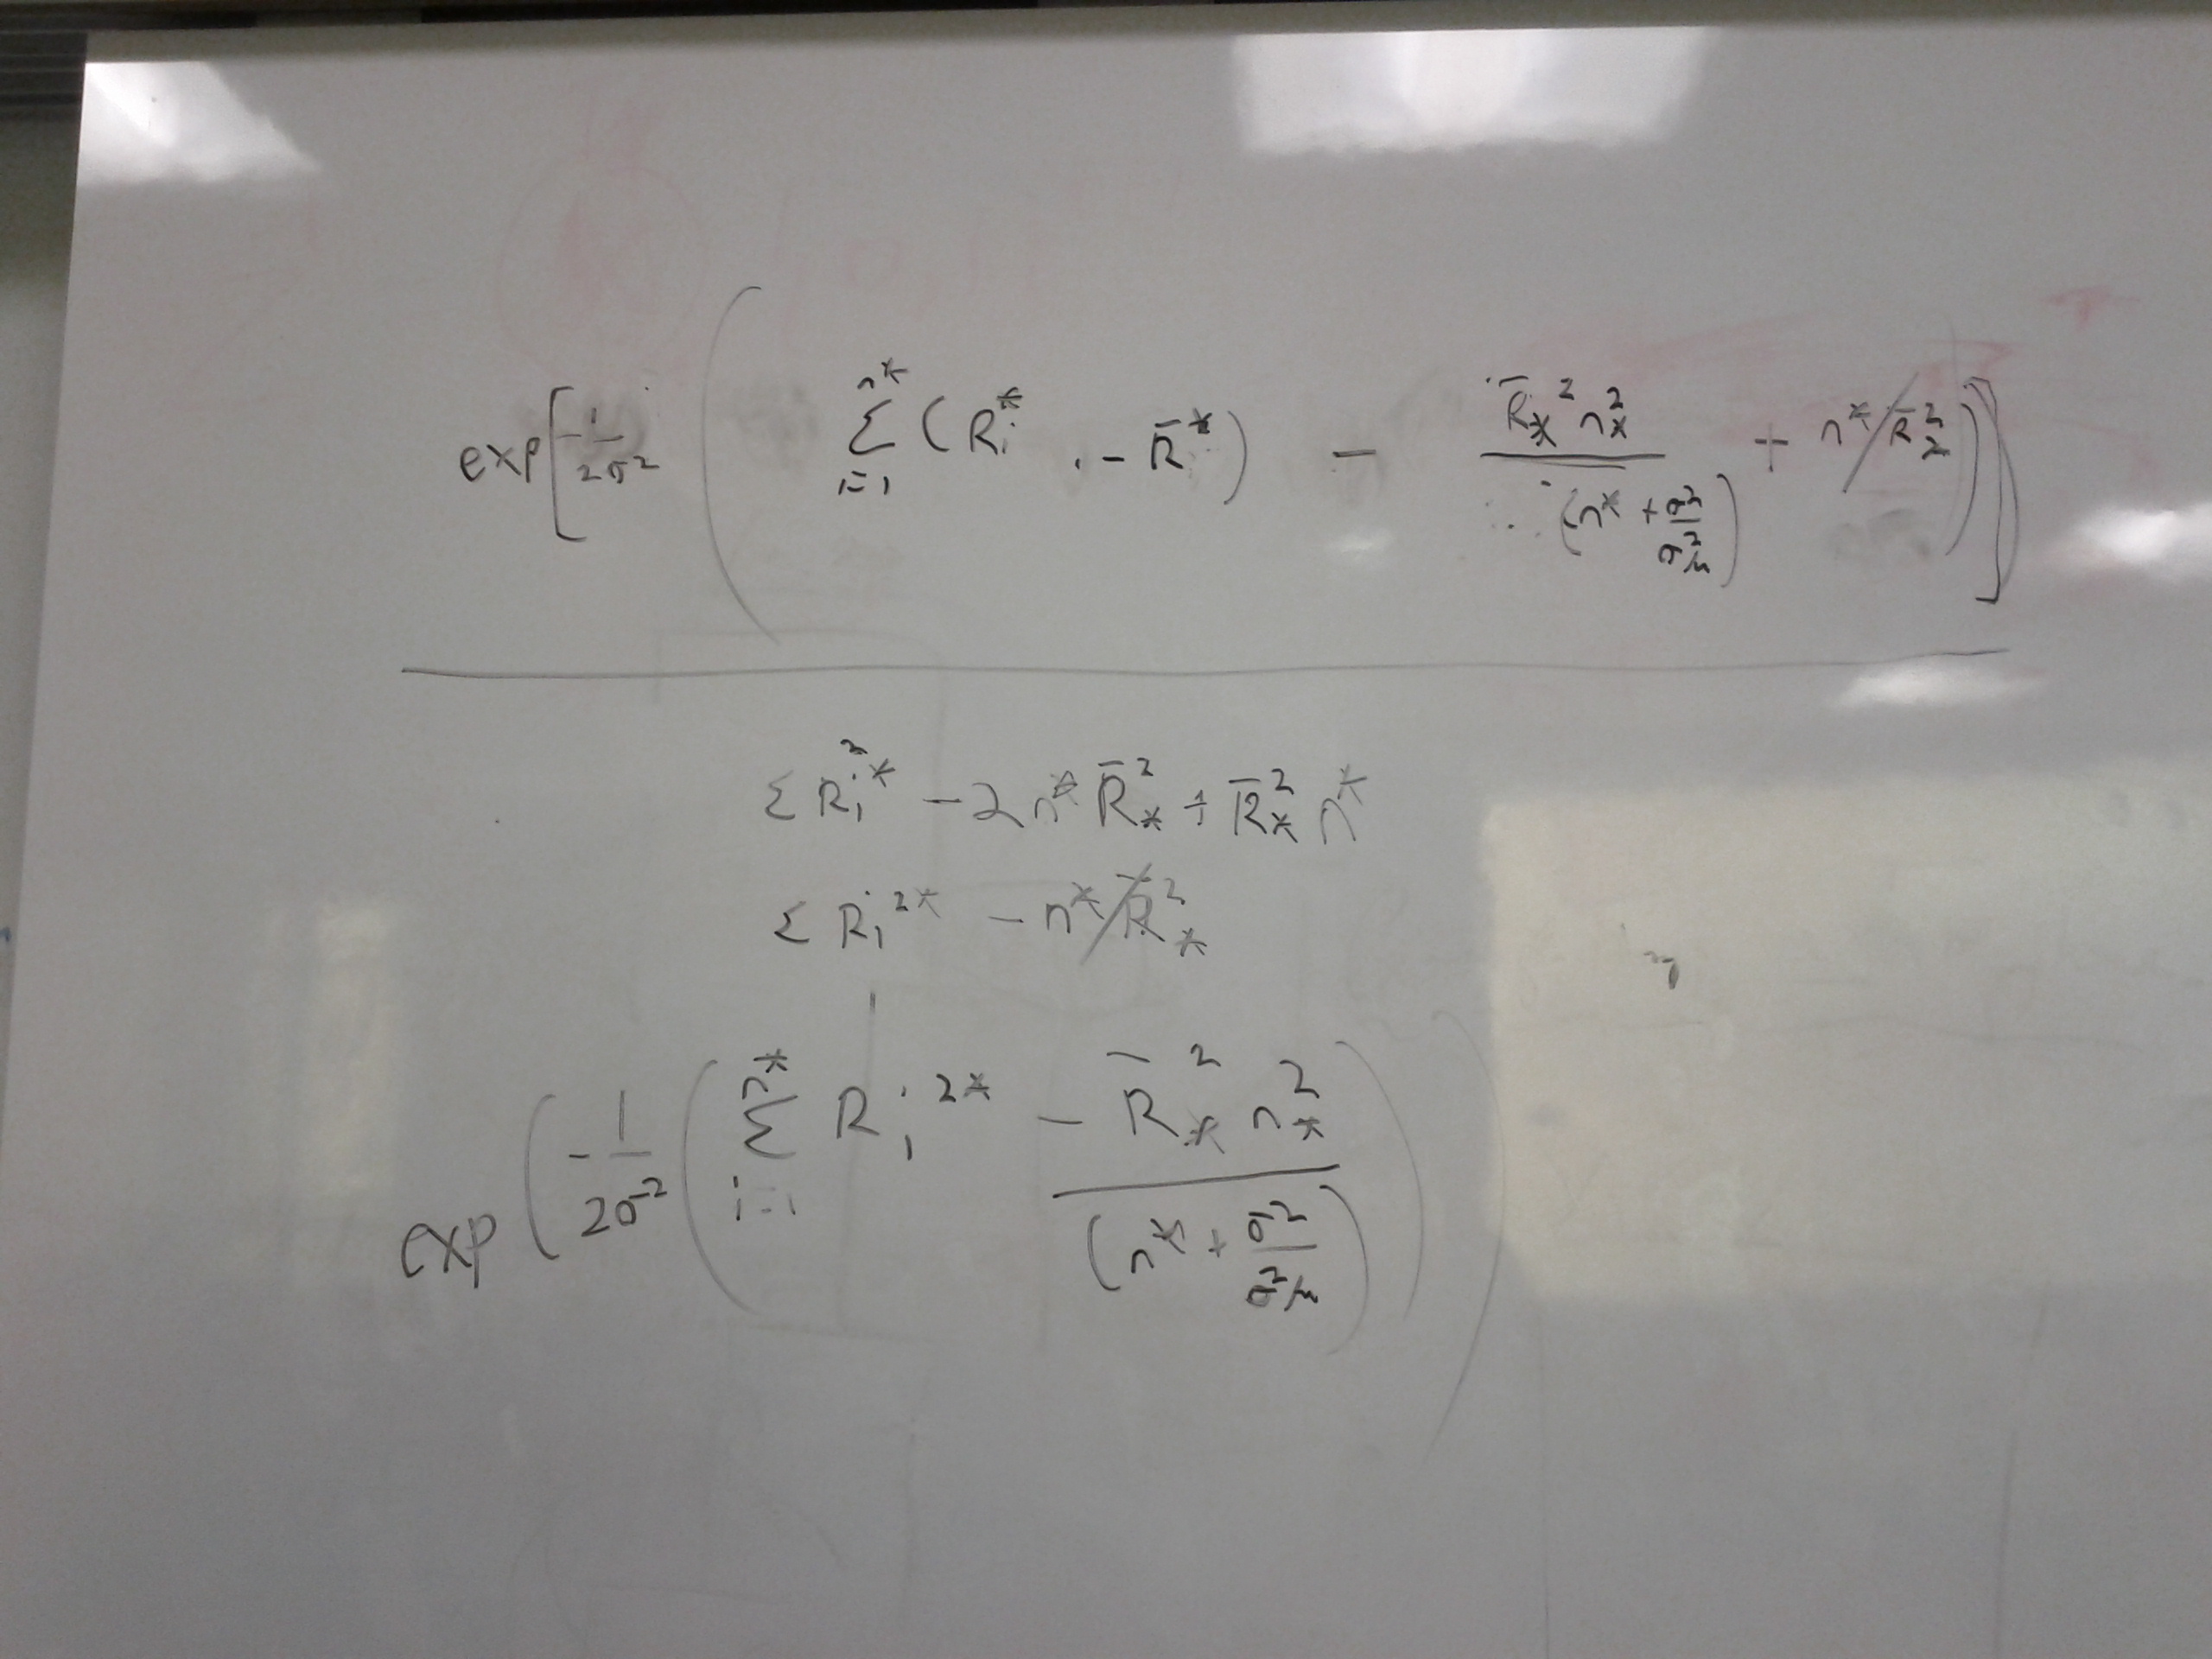 exp[-1/2σ² ( Σ_{i=1}^{n*} (R_i^* - R̄^*) - R̄_*² n_*² / (n* + σ²/σ²_μ) + n* R̄_*² )]
Σ R_i^{2*} - 2n* R̄_*² + R̄_*² n*
Σ R_i^{2*} - n* R̄_*²
exp( -1/2σ² ( Σ_{i=1}^{n*} R_i^{2*} - R̄_*² n_*² / (n* + σ²/σ²_μ) ) )